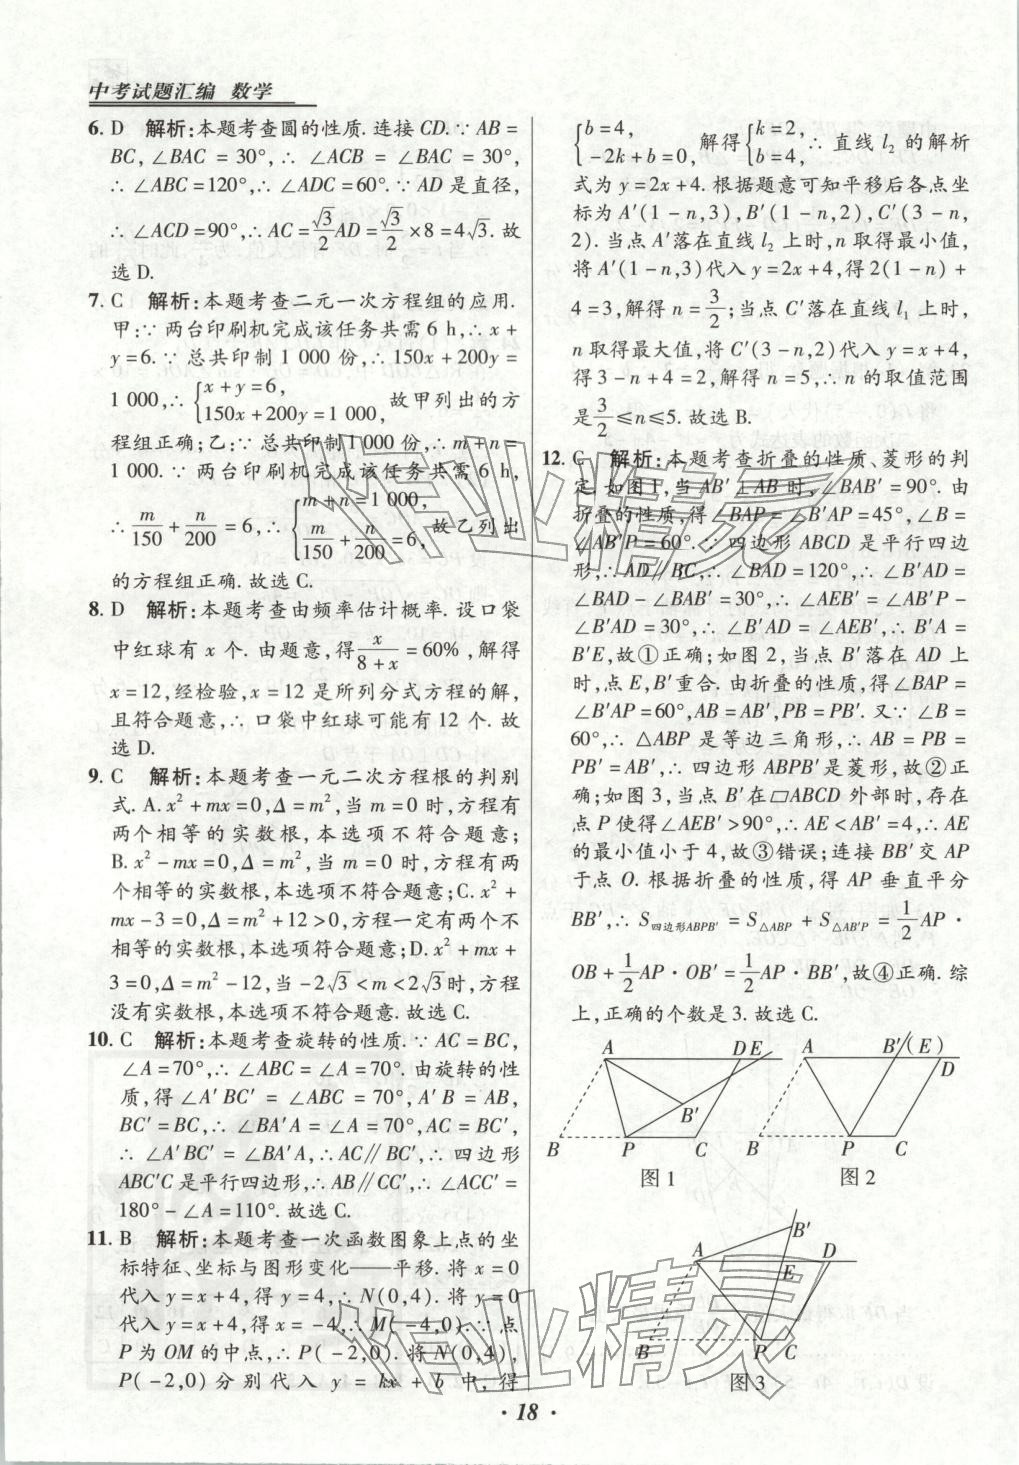 中考试题汇编 数学
6. D 解析:本题考查圆的性质. 连接 CD. ∵ AB =
BC, ∠BAC = 30°, ∴ ∠ACB = ∠BAC = 30°,
∴ ∠ABC = 120°, ∴ ∠ADC = 60°. ∵ AD 是直径,
∴ ∠ACD = 90°, ∴ AC = √3/2 AD = √3/2 × 8 = 4√3. 故
选 D.
7. C 解析:本题考查二元一次方程组的应用.
甲:∵ 两台印刷机完成该任务共需 6 h, ∴ x +
y = 6. ∵ 总共印制 1 000 份, ∴ 150x + 200y =
1 000, ∴ {x + y = 6, 150x + 200y = 1 000, 故甲列出的方
程组正确;乙:∵ 总共印制 1 000 份, ∴ m + n =
1 000. ∵ 两台印刷机完成该任务共需 6 h,
∴ m/150 + n/200 = 6, ∴ {m + n = 1 000, m/150 + n/200 = 6, 故乙列出
的方程组正确. 故选 C.
8. D 解析:本题考查由频率估计概率. 设口袋
中红球有 x 个. 由题意,得 x/(8 + x) = 60%,解得
x = 12,经检验,x = 12 是所列分式方程的解,
且符合题意,∴ 口袋中红球可能有 12 个. 故
选 D.
9. C 解析:本题考查一元二次方程根的判别
式. A. x² + mx = 0, Δ = m²,当 m = 0 时,方程有
两个相等的实数根,本选项不符合题意;
B. x² - mx = 0, Δ = m²,当 m = 0 时,方程有两
个相等的实数根,本选项不符合题意;C. x² +
mx - 3 = 0, Δ = m² + 12 > 0,方程一定有两个不
相等的实数根,本选项符合题意;D. x² + mx +
3 = 0, Δ = m² - 12,当 -2√3 < m < 2√3 时,方程
没有实数根,本选项不符合题意. 故选 C.
10. C 解析:本题考查旋转的性质. ∵ AC = BC,
∠A = 70°, ∴ ∠ABC = ∠A = 70°. 由旋转的性
质,得 ∠A′BC′ = ∠ABC = 70°, A′B = AB,
BC′ = BC, ∴ ∠BA′A = ∠A = 70°, AC = BC′,
∴ ∠A′BC′ = ∠BA′A, ∴ AC∥BC′, ∴ 四边形
ABC′C 是平行四边形, ∴ AB∥CC′, ∴ ∠ACC′ =
180° - ∠A = 110°. 故选 C.
11. B 解析:本题考查一次函数图象上点的坐
标特征、坐标与图形变化——平移. 将 x = 0
代入 y = x + 4,得 y = 4, ∴ N(0,4). 将 y = 0
代入 y = x + 4,得 x = -4, ∴ M(-4,0). ∵ 点
P 为 OM 的中点, ∴ P(-2,0). 将 N(0,4),
P(-2,0) 分别代入 y = kx + b 中,得
{b = 4, -2k + b = 0, 解得 {k = 2, b = 4, ∴ 直线 l₂ 的解析
式为 y = 2x + 4. 根据题意可知平移后各点坐
标为 A′(1 - n,3), B′(1 - n,2), C′(3 - n,
2). 当点 A′落在直线 l₂ 上时,n 取得最小值,
将 A′(1 - n,3)代入 y = 2x + 4,得 2(1 - n) +
4 = 3,解得 n = 3/2;当点 C′落在直线 l₁ 上时,
n 取得最大值,将 C′(3 - n,2)代入 y = x + 4,
得 3 - n + 4 = 2,解得 n = 5, ∴ n 的取值范围
是 3/2 ≤ n ≤ 5. 故选 B.
12. C 解析:本题考查折叠的性质、菱形的判
定. 如图 1,当 AB′⊥AB 时,∠BAB′ = 90°. 由
折叠的性质,得 ∠BAP = ∠B′AP = 45°, ∠B =
∠AB′P = 60°. ∵ 四边形 ABCD 是平行四边
形, ∴ AD∥BC, ∴ ∠BAD = 120°, ∴ ∠B′AD =
∠BAD - ∠BAB′ = 30°, ∴ ∠AEB′ = ∠AB′P -
∠B′AD = 30°, ∴ ∠B′AD = ∠AEB′, ∴ B′A =
B′E,故①正确;如图 2,当点 B′落在 AD 上
时,点 E,B′重合. 由折叠的性质,得 ∠BAP =
∠B′AP = 60°, AB = AB′, PB = PB′. 又∵ ∠B =
60°, ∴ △ABP 是等边三角形, ∴ AB = PB =
PB′ = AB′, ∴ 四边形 ABPB′是菱形,故②正
确;如图 3,当点 B′在▱ABCD 外部时,存在
点 P 使得∠AEB′ > 90°, ∴ AE < AB′ = 4, ∴ AE
的最小值小于 4,故③错误;连接 BB′交 AP
于点 O. 根据折叠的性质,得 AP 垂直平分
BB′, ∴ S四边形ABPB′ = S△ABP + S△AB′P = 1/2 AP ·
OB + 1/2 AP · OB′ = 1/2 AP · BB′,故④正确. 综
上,正确的个数是 3. 故选 C.
A D E B′ B P C
图 1
A B′(E) D B P C
图 2
B′ A E D B P C
图 3
作业精灵
作业精灵
· 18 ·